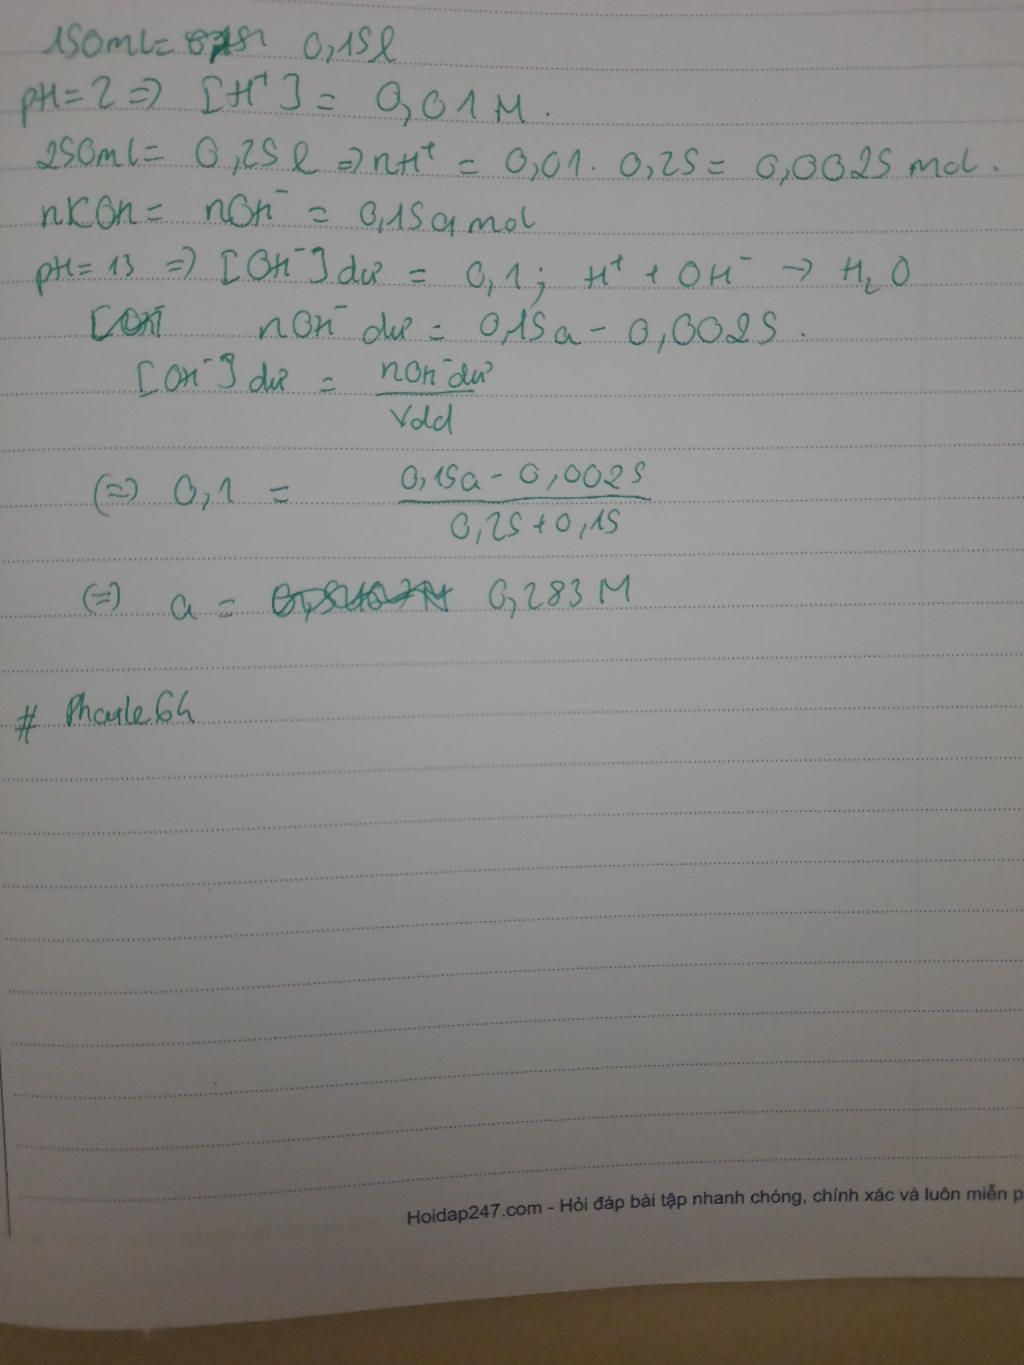 150ml = 0,15l
pH = 2 => [H⁺] = 0,01 M.
250ml = 0,25 l => nH⁺ = 0,01. 0,25 = 0,0025 mol.
nKOH = nOH⁻ = 0,15a mol
pH = 13 => [OH⁻] dư = 0,1; H⁺ + OH⁻ → H₂O
nOH⁻ dư = 0,15a - 0,0025.
[OH⁻] dư = nOH⁻ dư
Vdd
(=) 0,1 = 0,15a - 0,0025
0,25 + 0,15
(=) a = 0,283 M
#
Hoidap247.com - Hỏi đáp bài tập nhanh chóng, chính xác và luôn miễn p